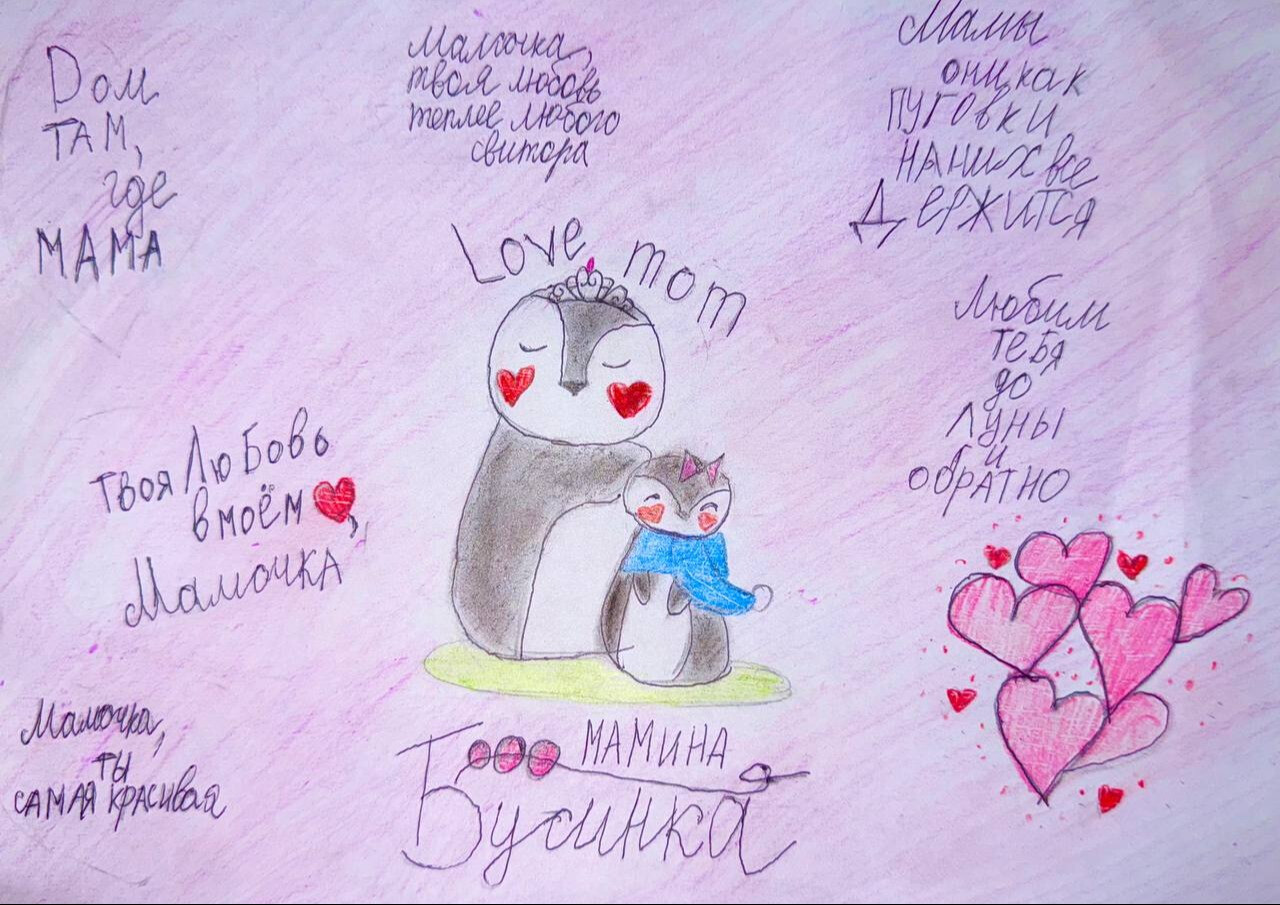 Дом
ТАМ,
где
МАМА
Мамочка,
твоя любовь
теплее любого
свитора
Мамы
они, как
ПУГОВКИ
НА НИХ все
ДЕРЖИТСЯ
Love mom
Любим
Тебя
до
Луны
и
обРАТНО
Твоя ЛюБовь
в моём
Мамочка
Мамочка,
ТЫ
САМАЯ красивая
МАМИНА
Бусинка